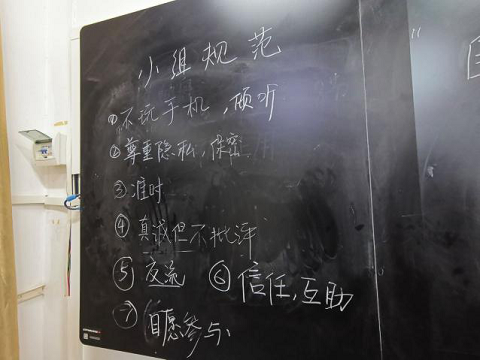 小组规范
①不玩手机，倾听
②尊重隐私，保密
③准时
④真诚但不批评
⑤交流 ⑥信任，互助
⑦自愿参与